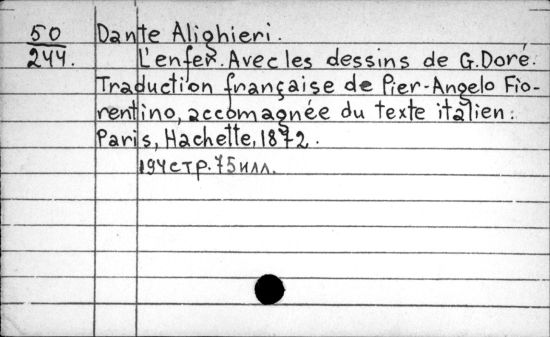 50
244.
Dante Alighieri.
L'enfer. Avec les dessins de G. Doré.
Traduction française de Pier-Angelo Fio-
rentino, accomagnée du texte italien:
Paris, Hachette, 1872.
194 стр. 75 илл.